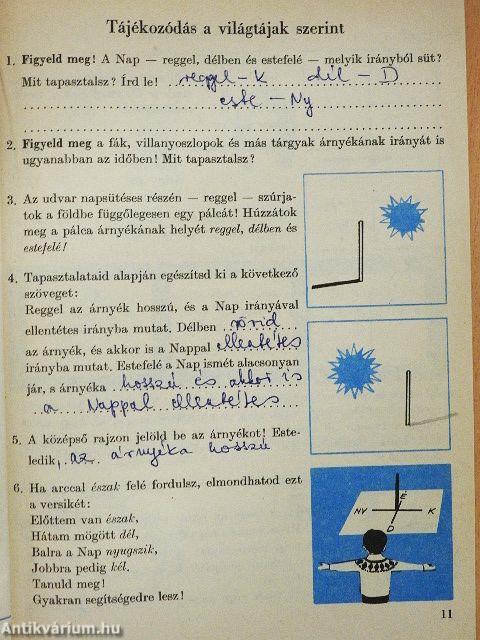 Tájékozódás a világtájak szerint
1. Figyeld meg! A Nap — reggel, délben és estefelé — melyik irányból süt?
Mit tapasztalsz? Írd le! reggel – K dél – D
este – Ny
2. Figyeld meg a fák, villanyoszlopok és más tárgyak árnyékának irányát is
ugyanabban az időben! Mit tapasztalsz?
3. Az udvar napsütéses részén — reggel — szúrja-
tok a földbe függőlegesen egy pálcát! Húzzátok
meg a pálca árnyékának helyét reggel, délben és
estefelé!
4. Tapasztalataid alapján egészítsd ki a következő
szöveget:
Reggel az árnyék hosszú, és a Nap irányával
ellentétes irányba mutat. Délben rövid
az árnyék, és akkor is a Nappal ellentétes
irányba mutat. Estefelé a Nap ismét alacsonyan
jár, s árnyéka hosszú és akkor is
a Nappal ellentétes
5. A középső rajzon jelöld be az árnyékot! Este-
ledik, az árnyéka hosszú
6. Ha arccal észak felé fordulsz, elmondhatod ezt
a versikét:
Előttem van észak,
Hátam mögött dél,
Balra a Nap nyugszik,
Jobbra pedig kél.
Tanuld meg!
Gyakran segítségedre lesz!
É
NY K
D
11
Antikvárium.hu